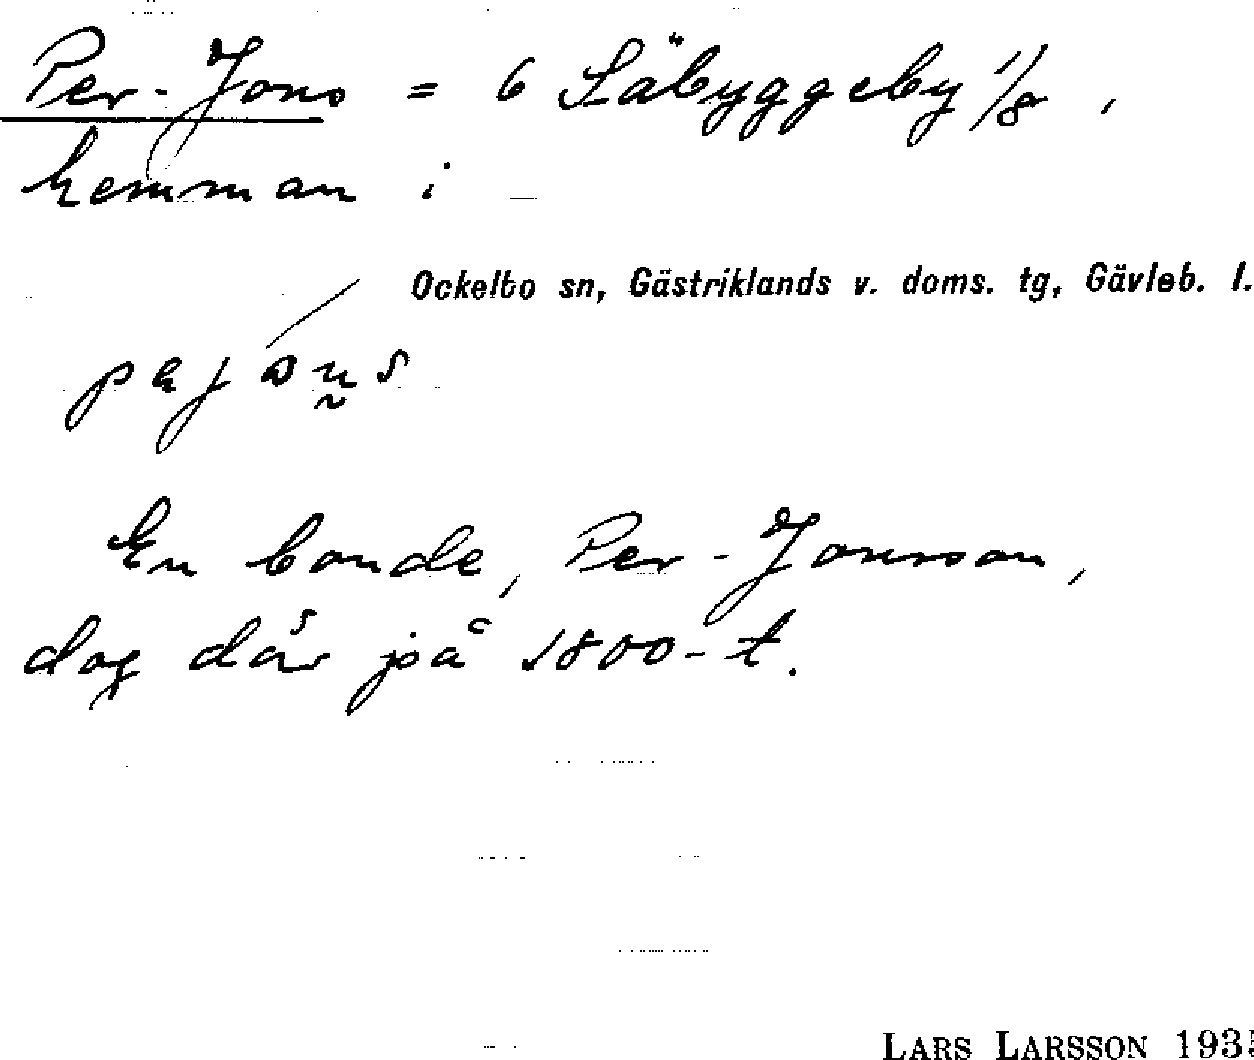 Per-Jons = 6 Säbyggeby 1/8,
hemman i
Ockelbo sn, Gästriklands v. doms. tg, Gävleb. l.
En bonde, Per-Jonsson,
dog där på 1800-t.
LARS LARSSON 1935